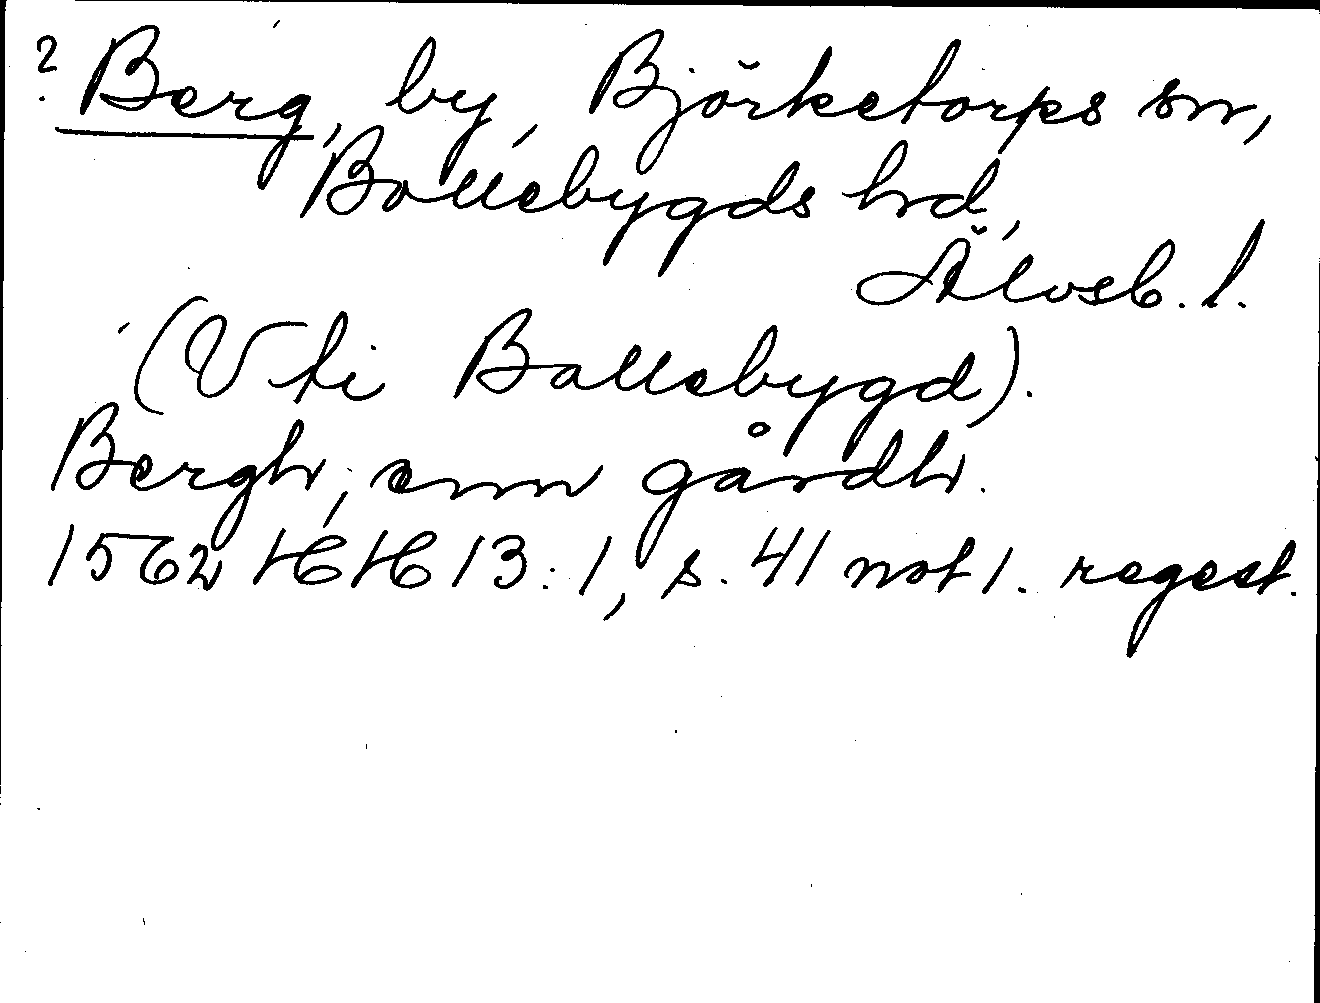 ? Berg, by, Björketorps sn,
Bollebygds hd,
Älvsb. l.
(V ti Bollebygd).
Bergh, enn gårdh.
1562 HH 13:1, s. 41 not 1. regest.